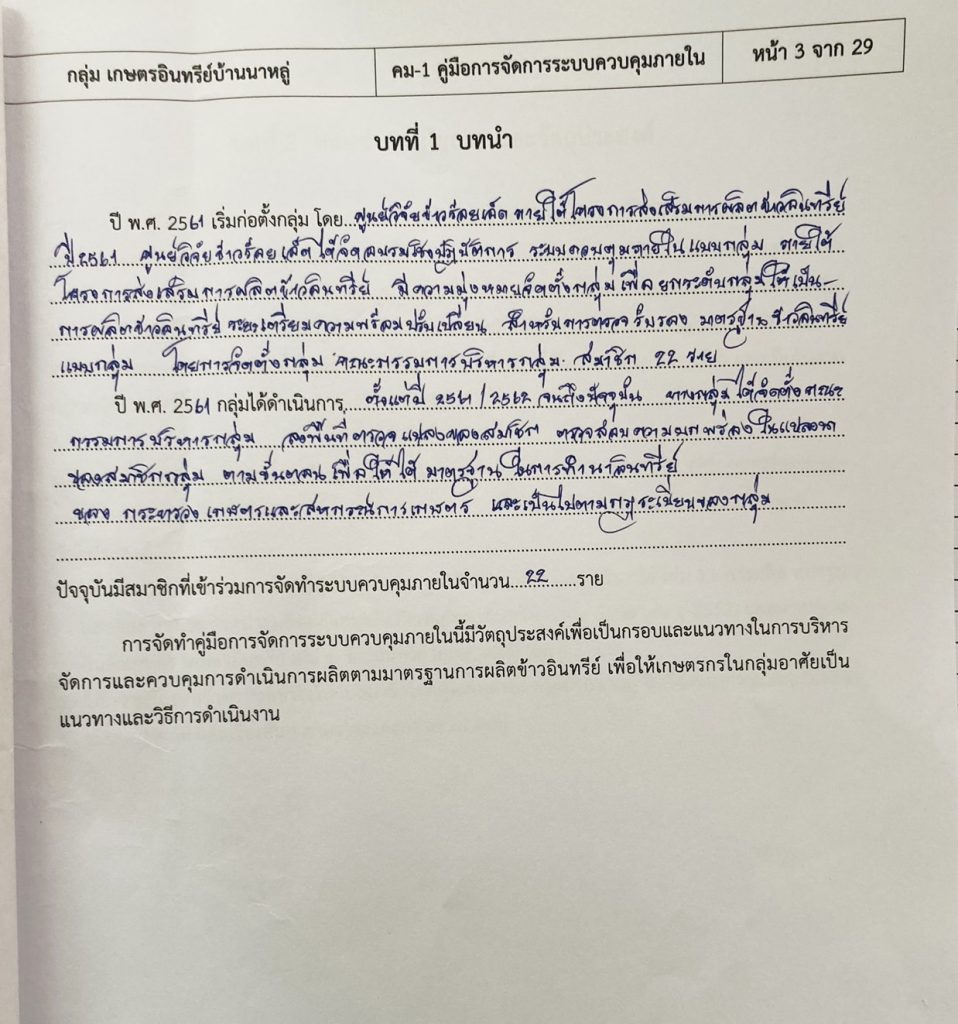 กลุ่ม เกษตรอินทรีย์บ้านนาหลู่
คม-1 คู่มือการจัดการระบบควบคุมภายใน
หน้า 3 จาก 29
บทที่ 1 บทนำ
ปี พ.ศ. 2561 เริ่มก่อตั้งกลุ่ม โดย ศูนย์วิจัยข้าวร้อยเอ็ด ภายใต้โครงการส่งเสริมการผลิตข้าวอินทรีย์
ปี 2561 ศูนย์วิจัยข้าวร้อยเอ็ด ได้จัดอบรมเชิงปฏิบัติการ ระบบควบคุมภายในแบบกลุ่ม ภายใต้
โครงการส่งเสริมการผลิตข้าวอินทรีย์ มีความมุ่งหมายจัดตั้งกลุ่มเพื่อยกระดับกลุ่มให้เป็น
การผลิตข้าวอินทรีย์ ระยะเตรียมความพร้อมปรับเปลี่ยน สำหรับการตรวจรับรอง มาตรฐานข้าวอินทรีย์
แบบกลุ่ม โดยการจัดตั้งกลุ่ม คณะกรรมการบริหารกลุ่ม สมาชิก 22 ราย
ปี พ.ศ. 2561 กลุ่มได้ดำเนินการ ตั้งแต่ปี 2561/2562 จนถึงปัจจุบัน ทางกลุ่มได้จัดตั้งคณะ
กรรมการบริหารกลุ่ม ลงพื้นที่ตรวจแปลงของสมาชิก ตรวจสอบความบกพร่องในแปลงนา
ของสมาชิกกลุ่ม ตามขั้นตอนเพื่อให้ได้ มาตรฐานในการทำนาอินทรีย์
ของ กระทรวงเกษตรและสหกรณ์การเกษตร และเป็นไปตามกฎระเบียบของกลุ่ม
ปัจจุบันมีสมาชิกที่เข้าร่วมการจัดทำระบบควบคุมภายในจำนวน...22......ราย
การจัดทำคู่มือการจัดการระบบควบคุมภายในนี้มีวัตถุประสงค์เพื่อเป็นกรอบและแนวทางในการบริหาร
จัดการและควบคุมการดำเนินการผลิตตามมาตรฐานการผลิตข้าวอินทรีย์ เพื่อให้เกษตรกรในกลุ่มอาศัยเป็น
แนวทางและวิธีการดำเนินงาน